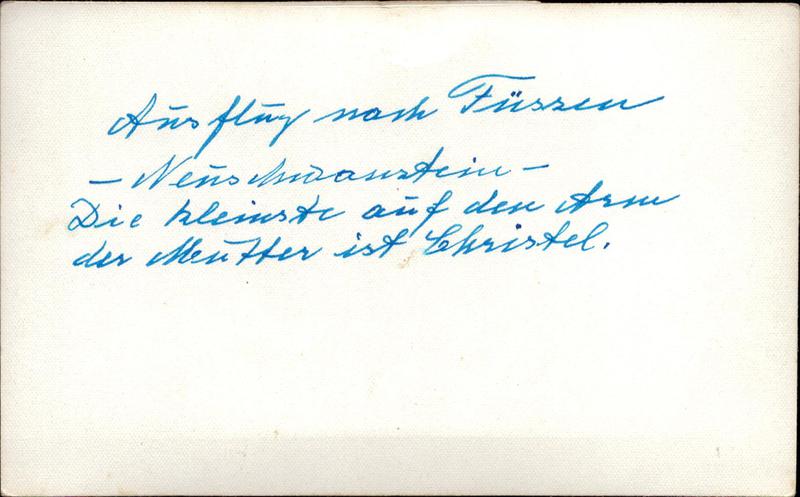 Ausflug nach Füssen
- Neuschwanstein -
Die kleinste auf den Arm
der Mutter ist Christel.